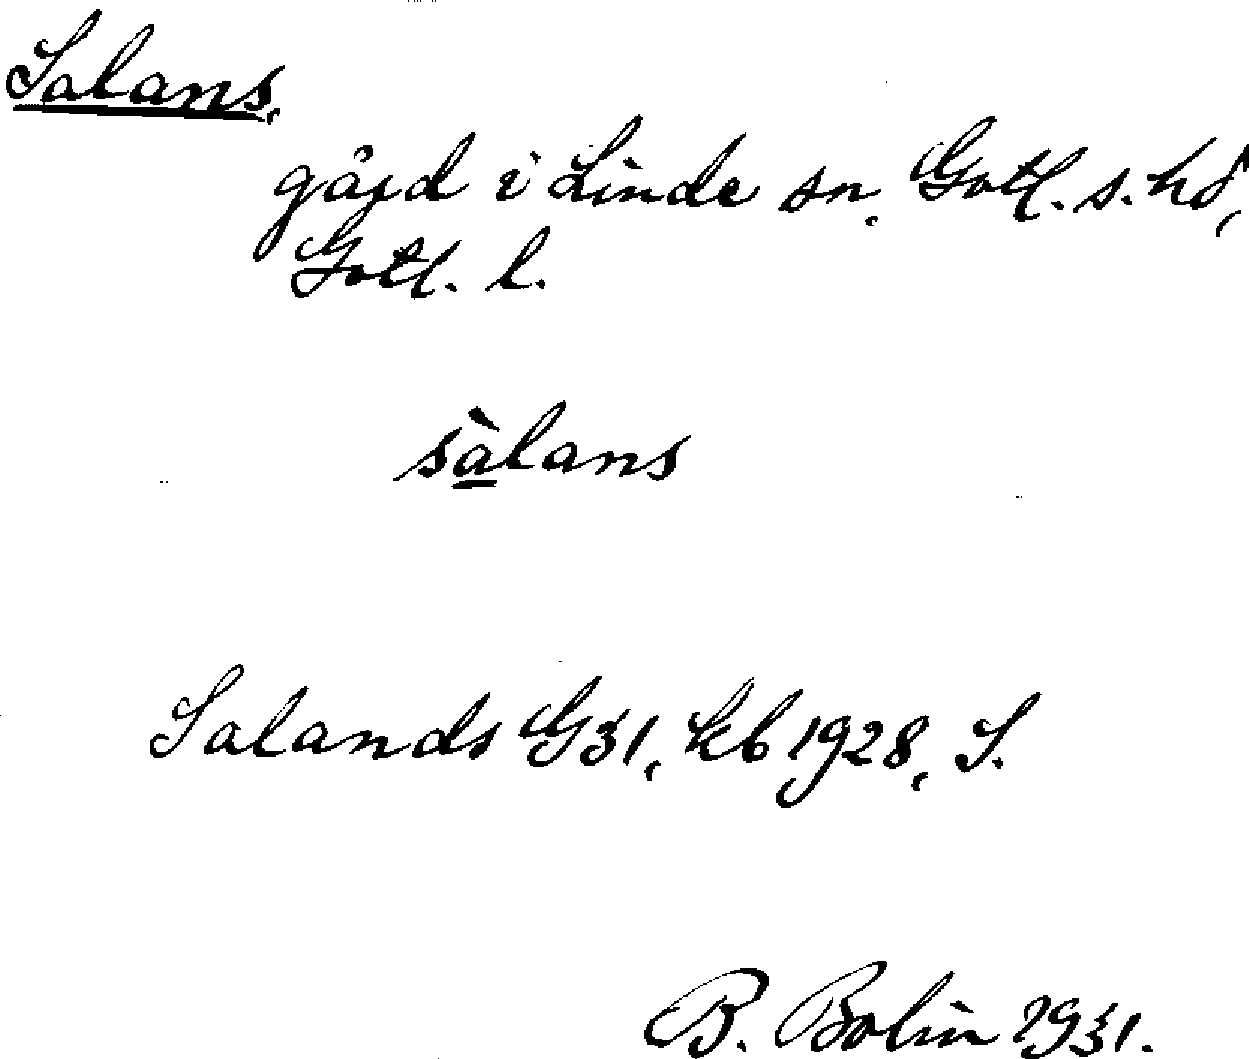 Salans,
gård i Linde sn, Gotl. s. hd,
Gotl. l.
sàlans
Salands G31, kb 1928, S.
B. Bolin 1931.